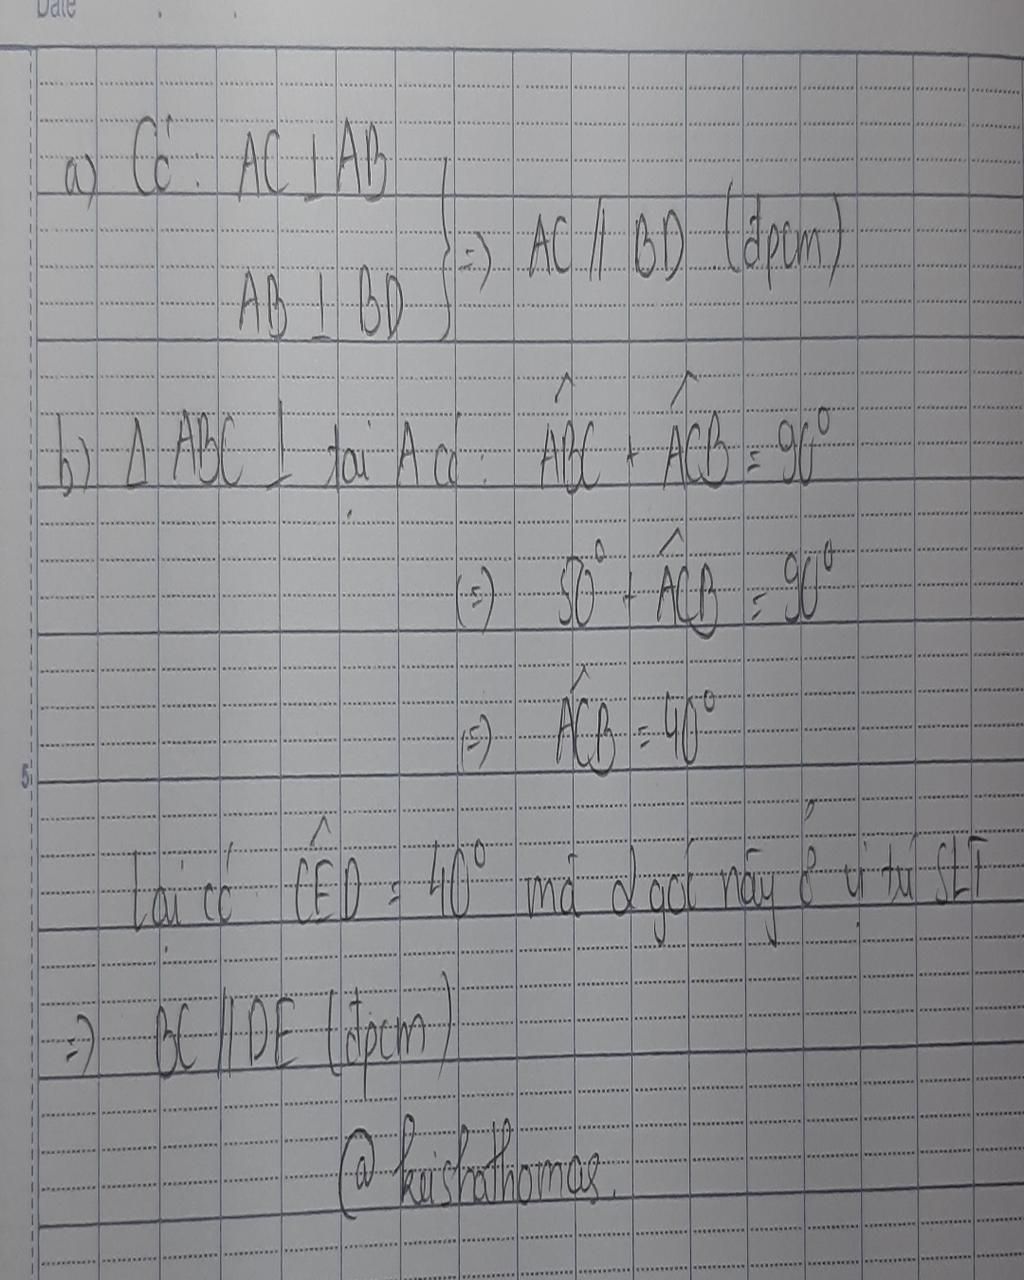 Date
a) Có: AC ⊥ AB
AB ⊥ BD } => AC // BD (đpcm)
b) Δ ABC ⊥ tại A có: ABĈ + AĈB = 90°
(=) 50° + AĈB = 90°
(=) AĈB = 40°
5
Lại có CÊD = 40° mà 2 góc này ở vị trí SLT
=> BC // DE (đpcm)
@ keishathomas.